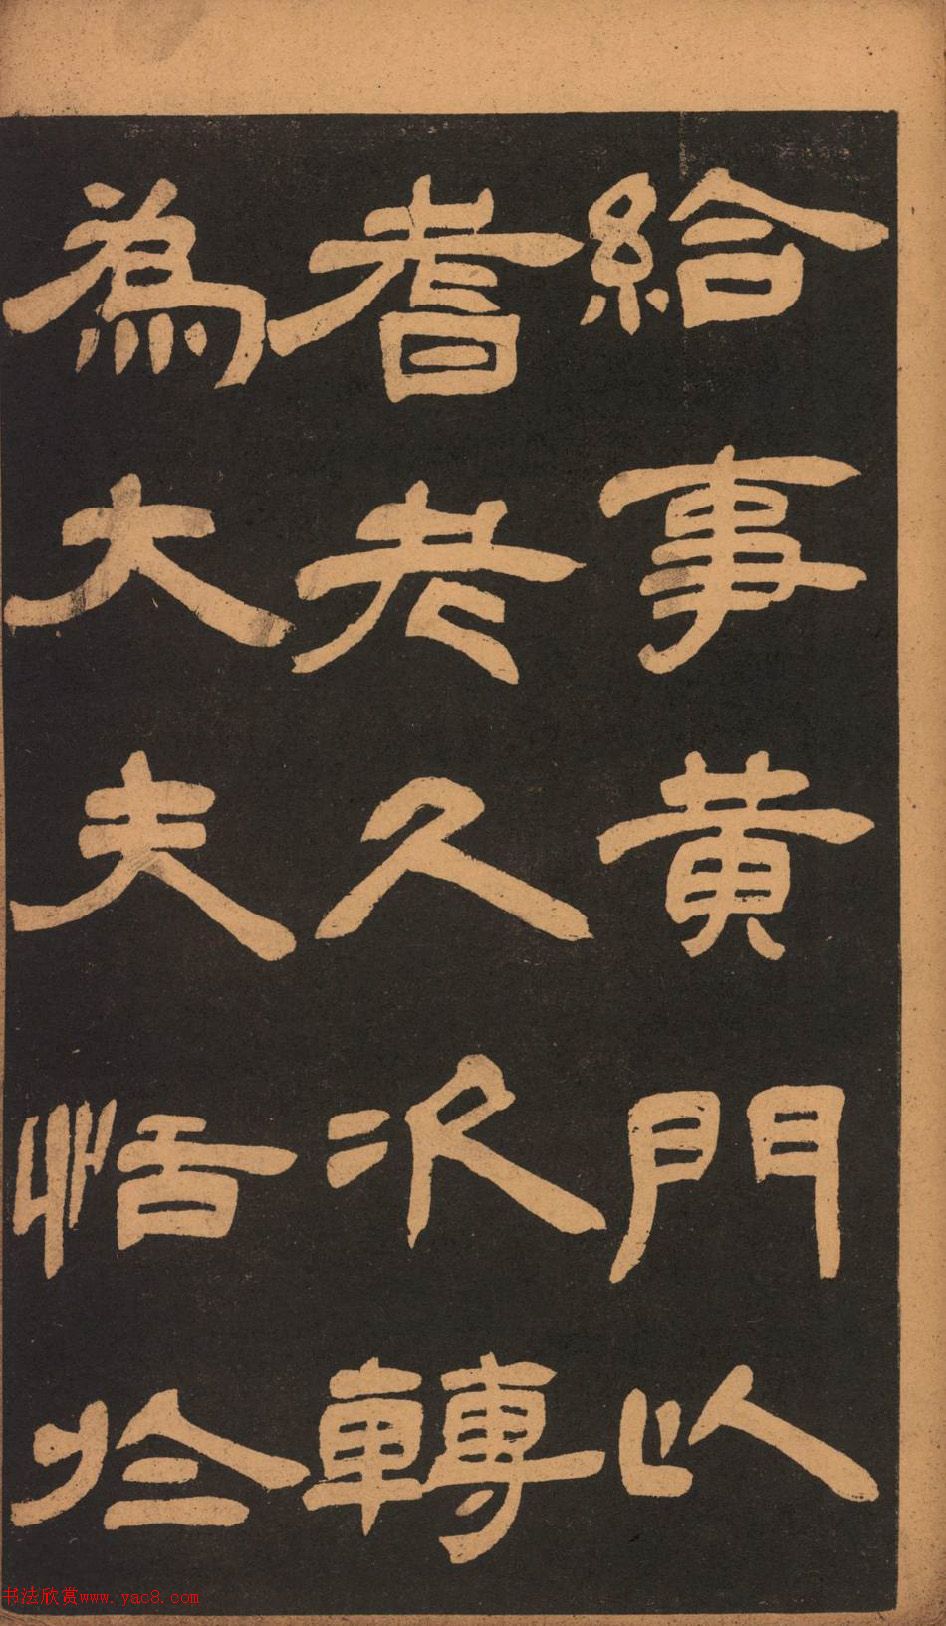 給事黄門以
耆老久次轉
為大夫恬於
书法欣赏www.yac8.com